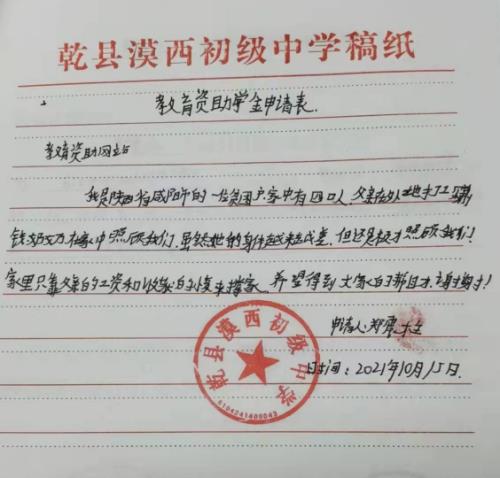 乾县漠西初级中学稿纸
教育资助学金申请表.
教育资助网站
我是陕西省咸阳市的一位贫困户家中有四口人,父亲在外地打工赚
钱奶奶在家中照顾我们,虽然她的身体越来越差,但还是极力照顾我们!
家里只靠父亲的工资和收获的小麦来撑家,希望得到大家的帮助,谢谢!
申请人:郑
时间:2021年10月15日.
乾县漠西初级中学
6104241400043